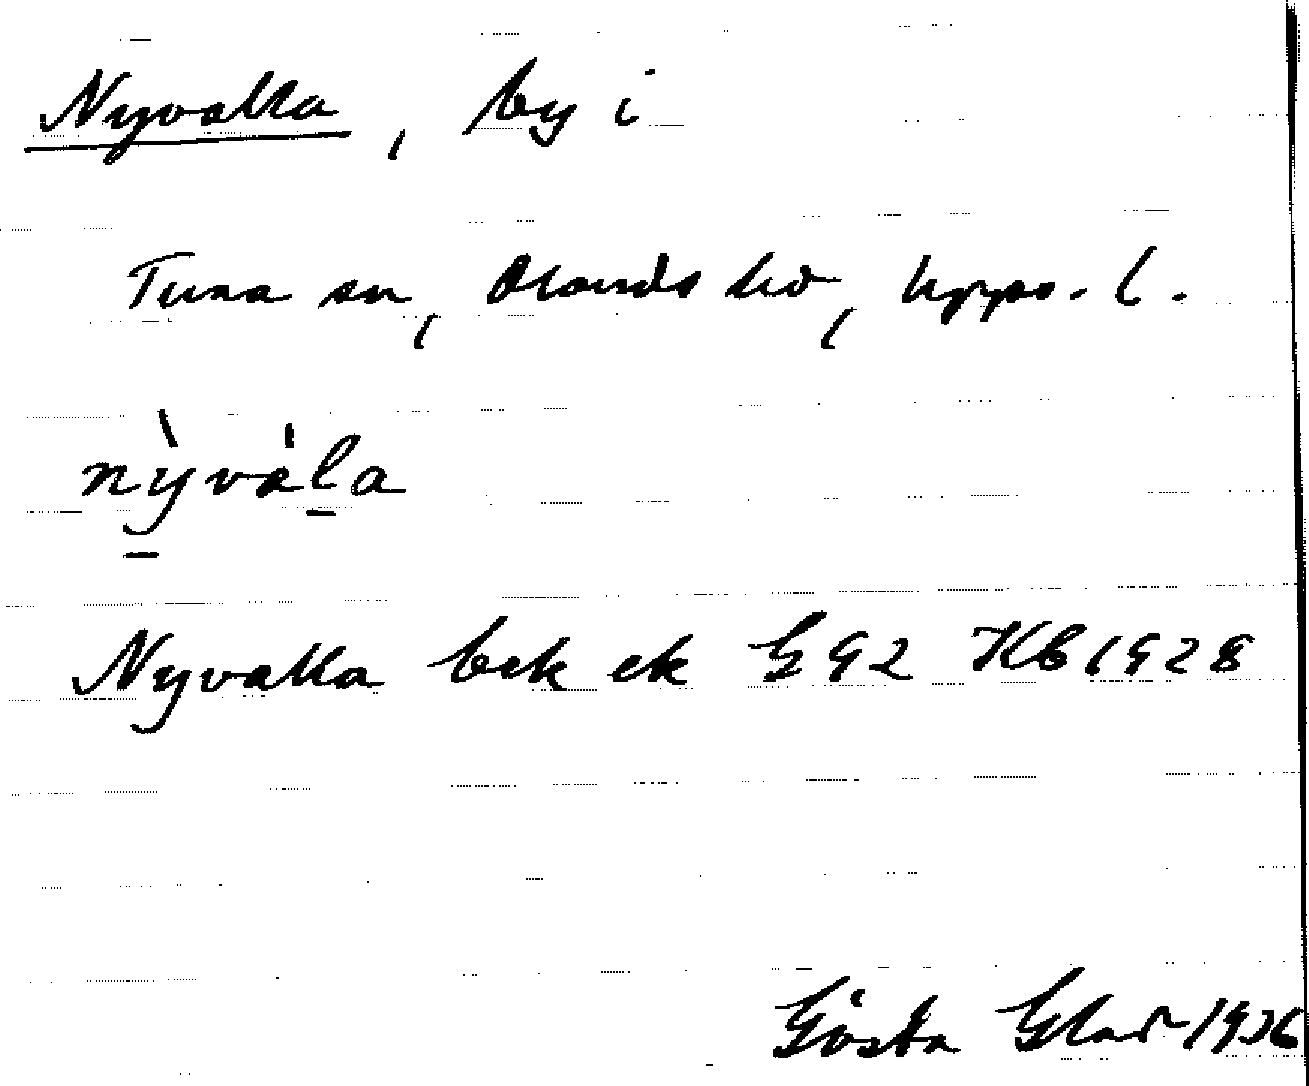 Nyvalla, by i
Tuna sn, Olands hd, Upps. l.
nỳvàla
Nyvalla bek ek G 92 KB 1928
Gösta